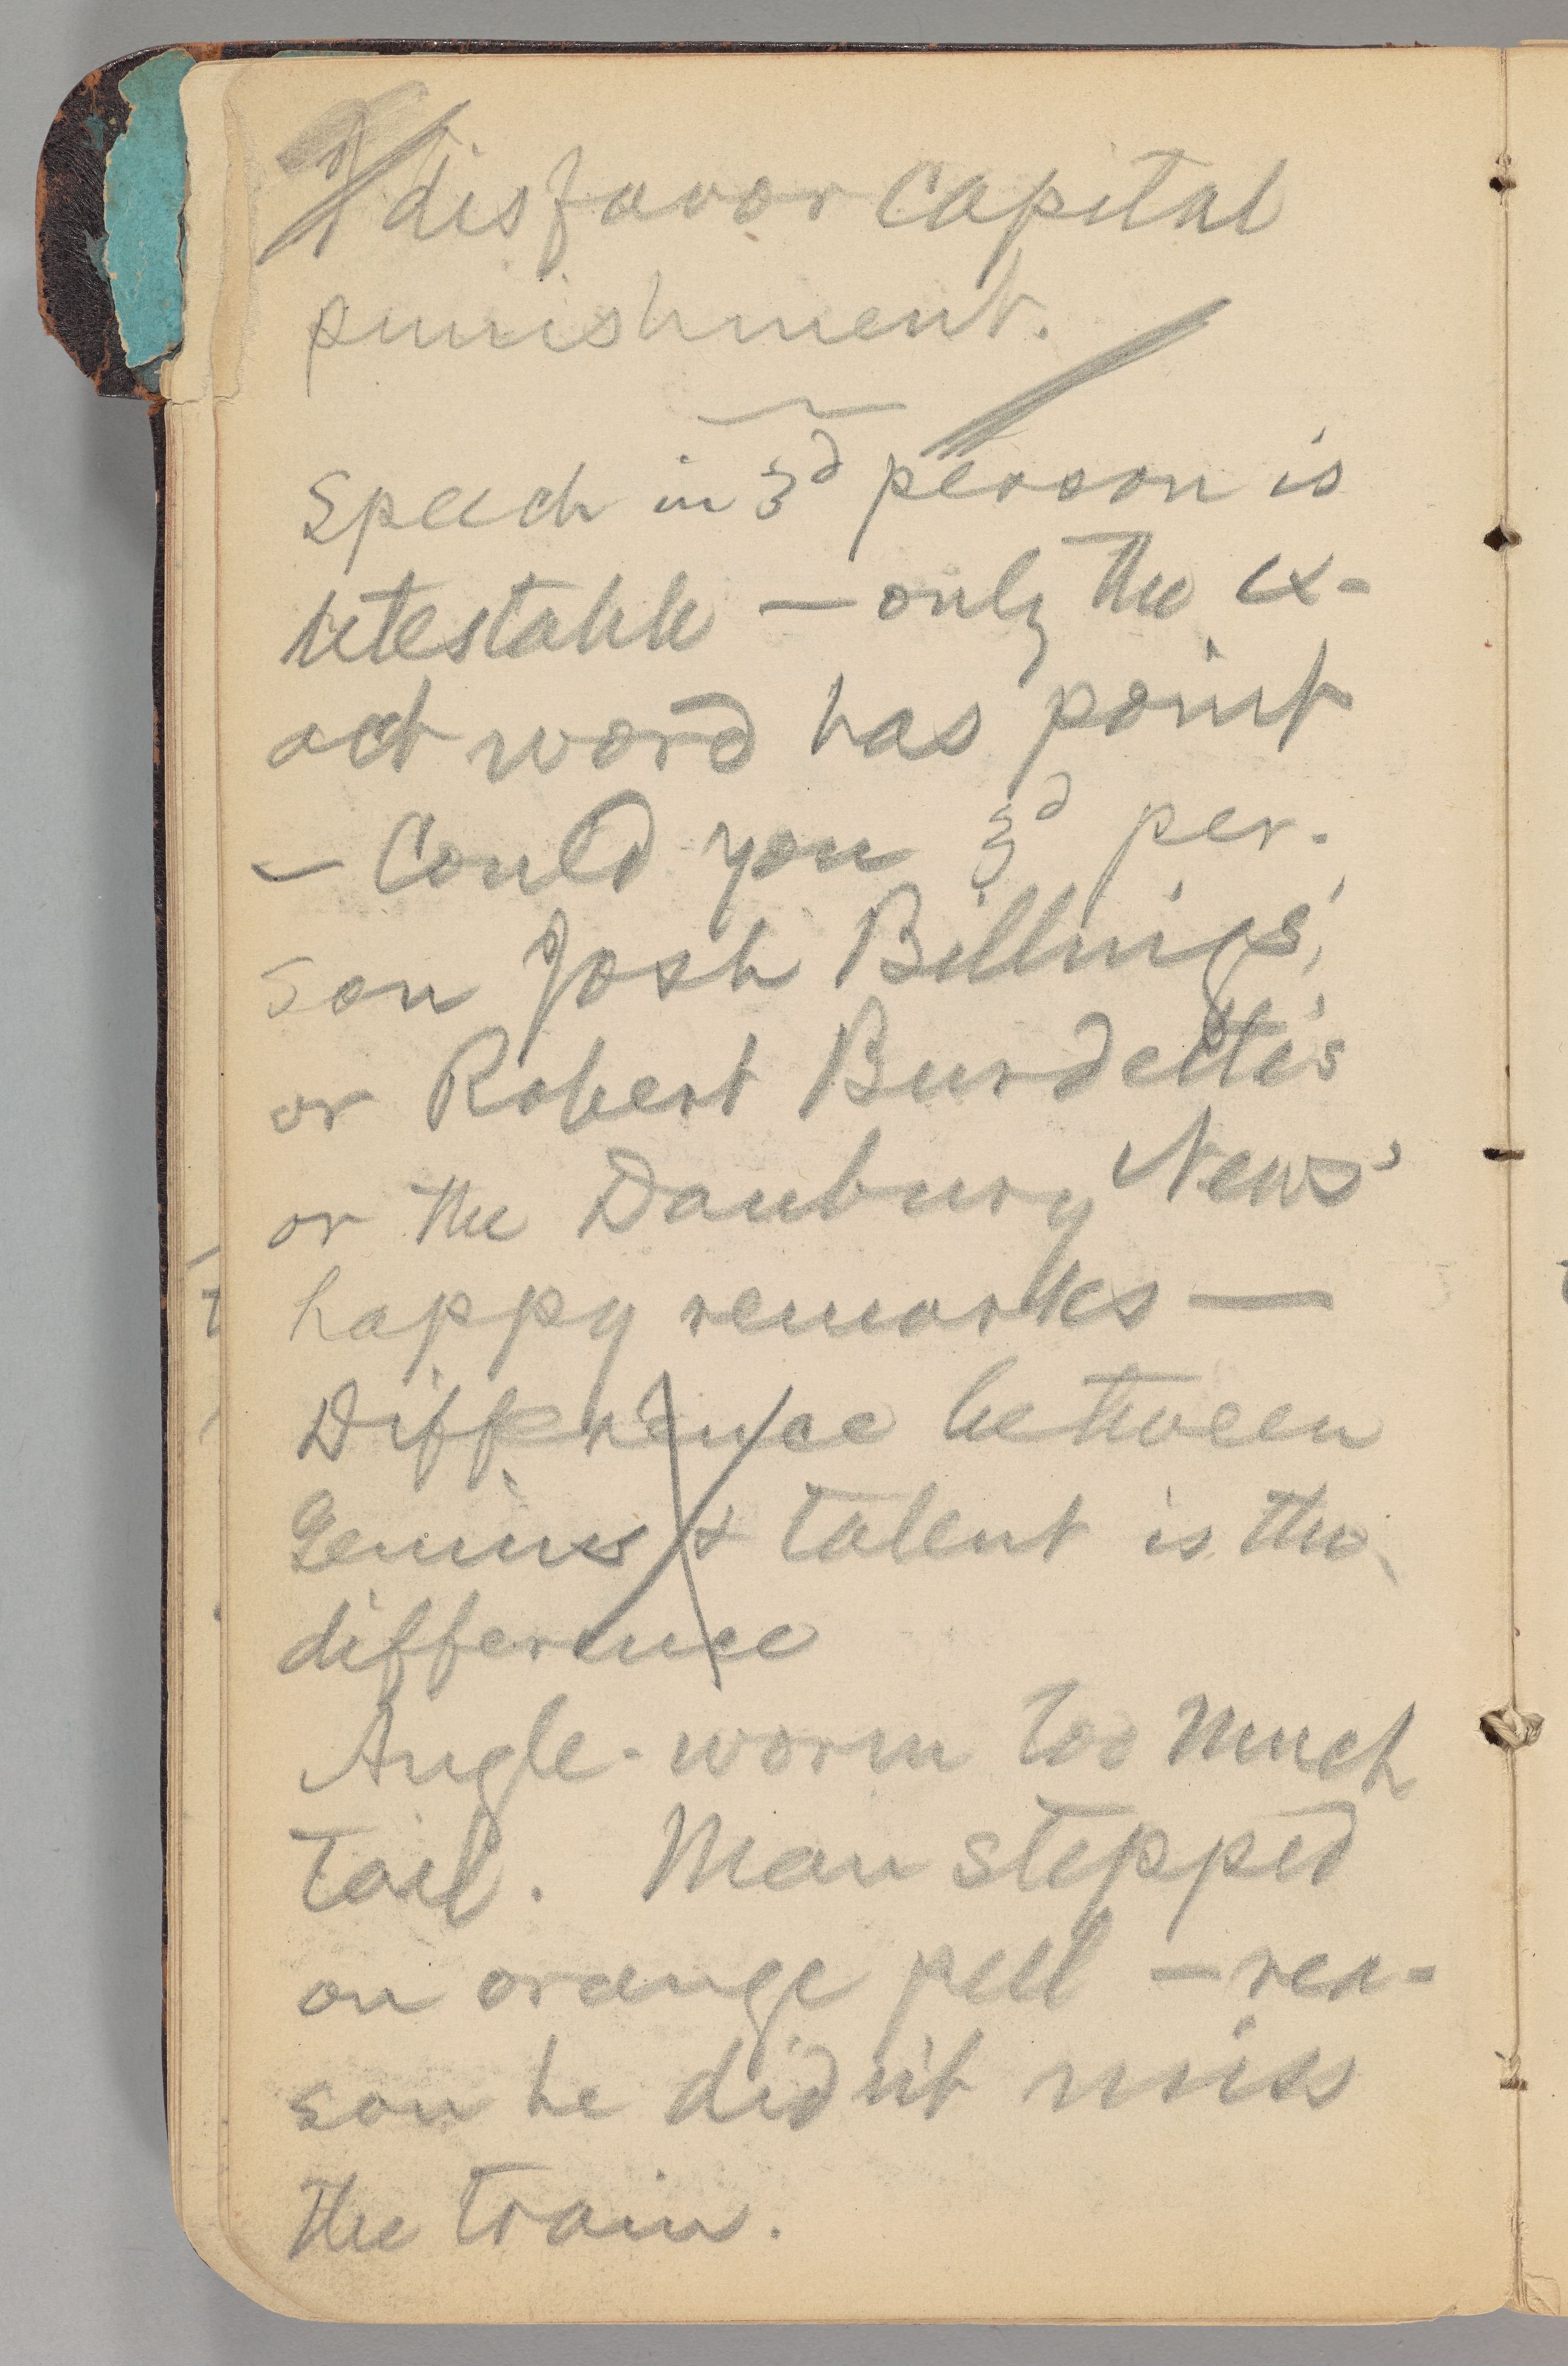 I disfavor capital
punishment.
Speech in 3d person is
detestable — only the ex-
act word has point
— Could you 3d per-
son Josh Billings',
or Robert Burdette's
or the Danbury News'
happy remarks —
Difference between
Genius & talent is the
difference
Angle-worm too much
tail. Man stepped
on orange peel — rea-
son he didn't miss
the train.